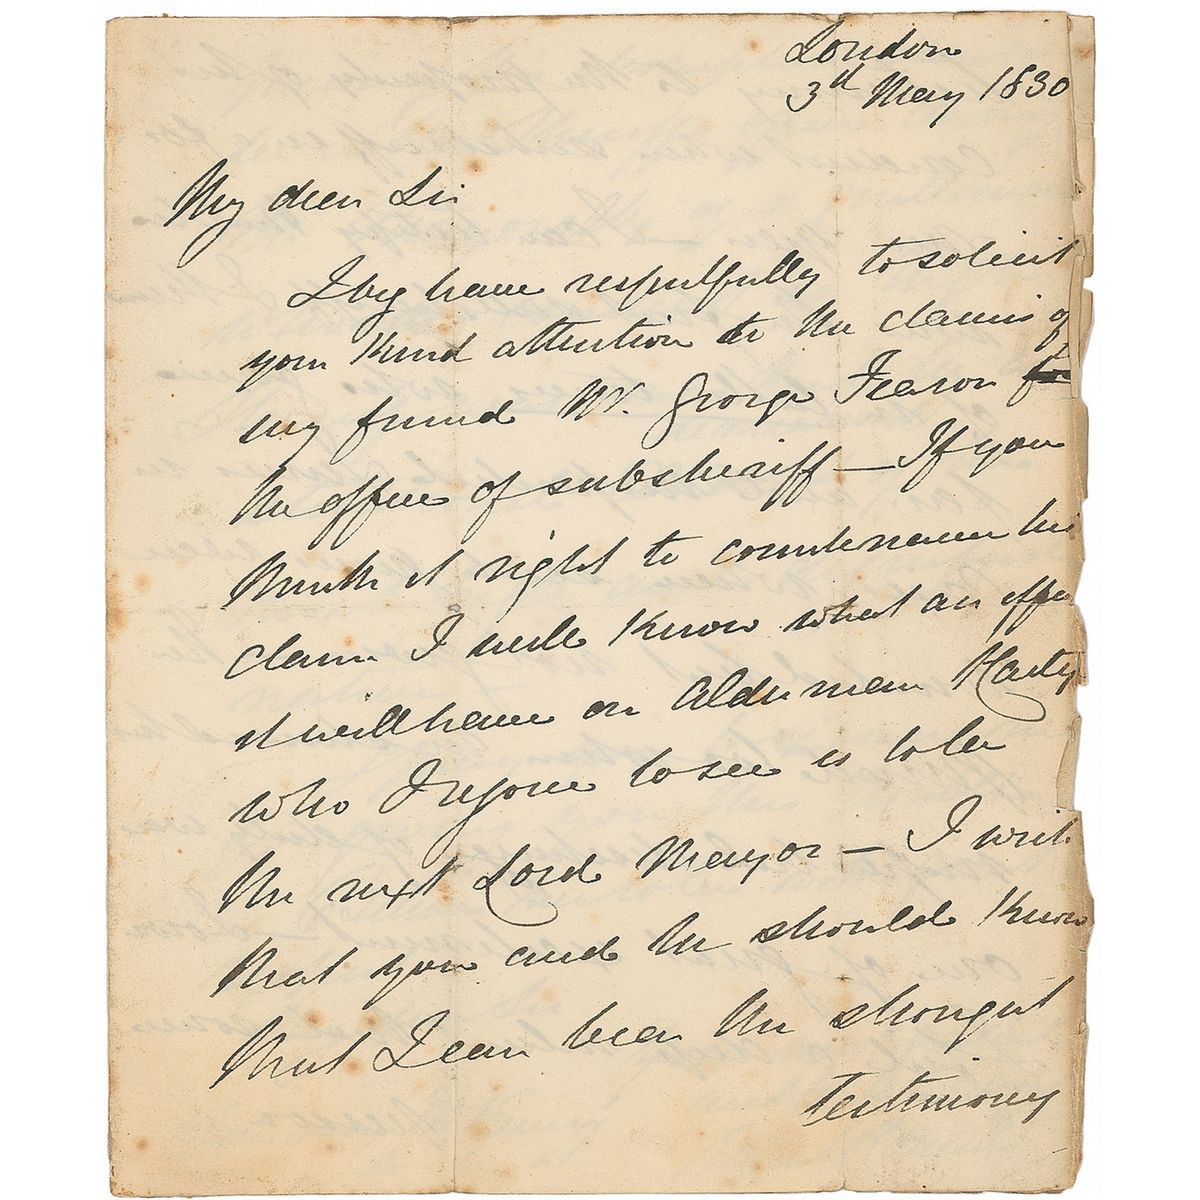 London
3d May 1830
My dear Sir
I beg leave respectfully to solicit
your kind attention to the claims of
my friend Mr. George Fearon for
the office of subsheriff — If you
think it right to countenance his
claim I well know what an effect
it will have on Alderman
who I rejoice to see is to be
the next Lord Mayor — I wish
that you and he should know
that I can bear the strongest
testimony